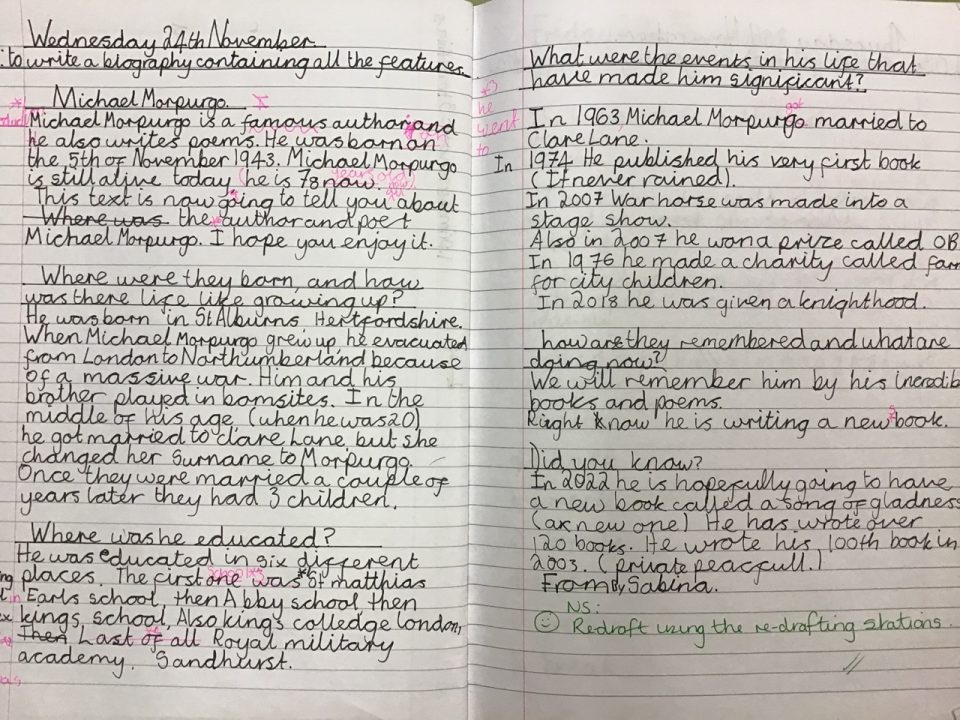 Wednesday 24th November
: to write a biography containing all the features.
Michael Morpurgo.
Michael Morpurgo is a famous author and
he also writes poems. He was born on
the 5th of November 1943. Michael Morpurgo
years old
is still alive today (he is 78 now.
This text is now going to tell you about
Where was the author and poet
Michael Morpurgo. I hope you enjoy it.
Where were they born, and how
was there life like growing up?
He was born in St Alburns, Hertfordshire.
When Michael Morpurgo grew up he evacuated
from London to Northumberland because
of a massive war. Him and his
brother played in bomsites. In the
middle of his age, (when he was 20)
he got married to clare Lane but she
changed her Surname to Morpurgo.
Once they were married a couple of
years later they had 3 children.
Where was he educated?
He was educated in six different
places. The first one was St matthias
in Earls school, then Abby school then
kings, school, Also kings colledge london,
Then Last of all Royal military
academy, Sandhurst.
What were the events in his life that
have made him significant?
he
went
to
got
In 1963, Michael Morpurgo married to
Clare Lane.
In 1974 He published his very first book
(It never rained).
In 2007 War horse was made into a
stage show.
Also in 2007 he won a prize called OB
In 1976 he made a charity called farm
for city children.
In 2018 he was given a knighthood.
how are they remembered and what are
doing now?
We will remember him by his incredib
books and poems.
Right know he is writing a new book.
Did you know?
In 2022 he is hopefully going to have
a new book called a song of gladness
(a new one) He has wrote over
120 books. He wrote his 100th book in
2003. (private peacfull.)
From By Sabina.
NS:
Redraft using the re-drafting stations.